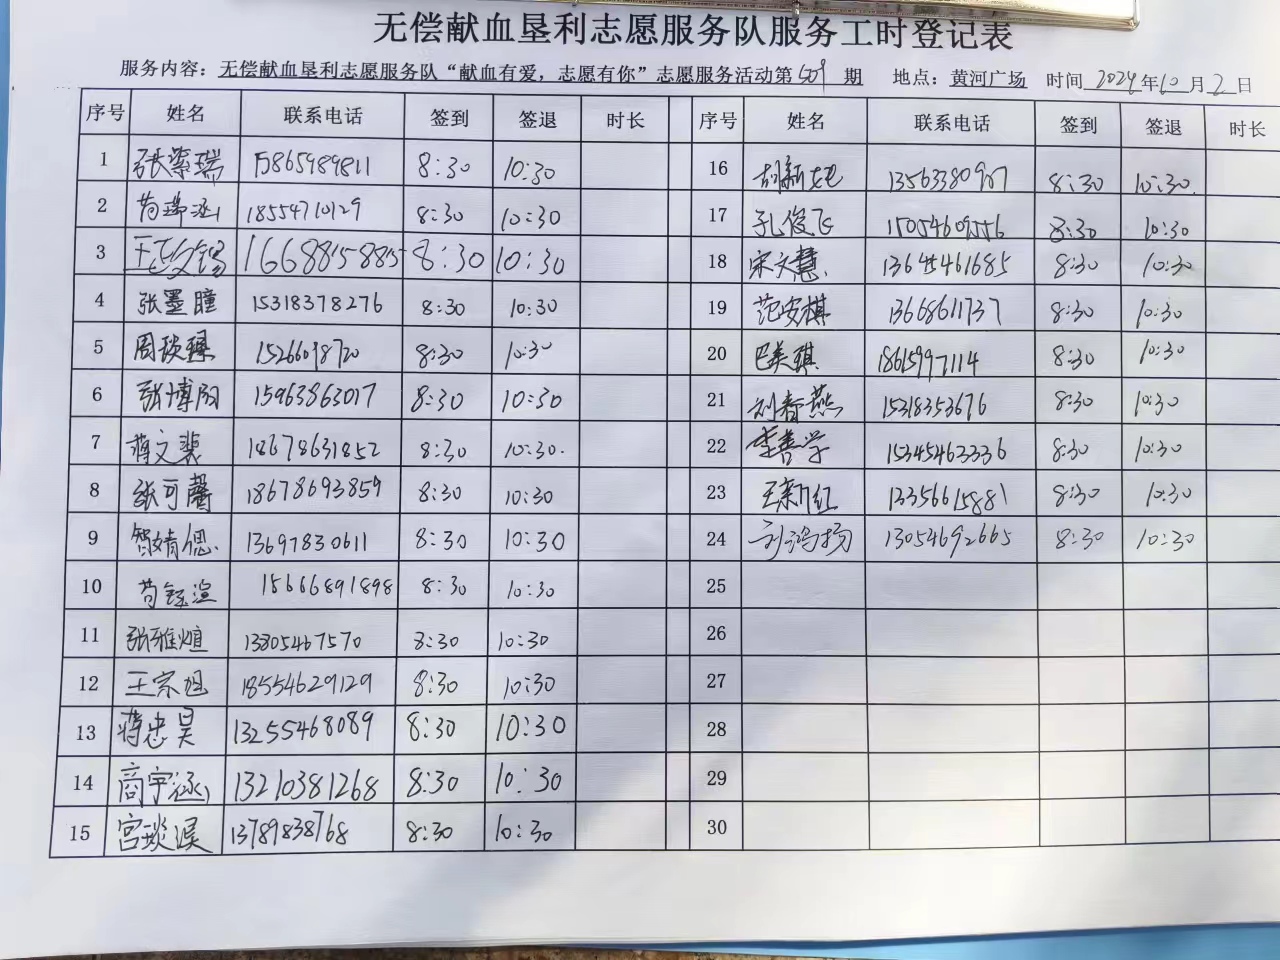 无偿献血垦利志愿服务队服务工时登记表
服务内容：无偿献血垦利志愿服务队“献血有爱，志愿有你”志愿服务活动第509期 地点：黄河广场 时间 2024年10月2日
序号 姓名 联系电话 签到 签退 时长 序号 姓名 联系电话 签到 签退 时长
1 张紫瑞 15865989811 8:30 10:30 16 胡新 8:30 10:30
2 18554710129 8:30 10:30 17 孔俊飞 15054609556 8:30 10:30
3 王 16688158885 8:30 10:30 18 宋文慧 13645461685 8:30 10:30
4 张墨瞳 15318378276 8:30 10:30 19 范安棋 13668611737 8:30 10:30
5 周琰臻 15266098720 8:30 10:30 20 巴美琪 18615997114 8:30 10:30
6 张博阳 15963863017 8:30 10:30 21 刘春燕 15318353676 8:30 10:30
7 蒋文裴 18678631852 8:30 10:30 22 李善学 15345463336 8:30 10:30
8 张可馨 18678693859 8:30 10:30 23 王新红 13356615881 8:30 10:30
9 智婧偲 13697830611 8:30 10:30 24 刘鸿扬 13054692665 8:30 10:30
10 苟钰渲 15666891898 8:30 10:30 25
11 张雅煊 13805467570 8:30 10:30 26
12 王宗旭 18554629129 8:30 10:30 27
13 蒋忠昊 13255468089 8:30 10:30 28
14 商宇涵 13210381268 8:30 10:30 29
15 宫琰淏 13789838768 8:30 10:30 30